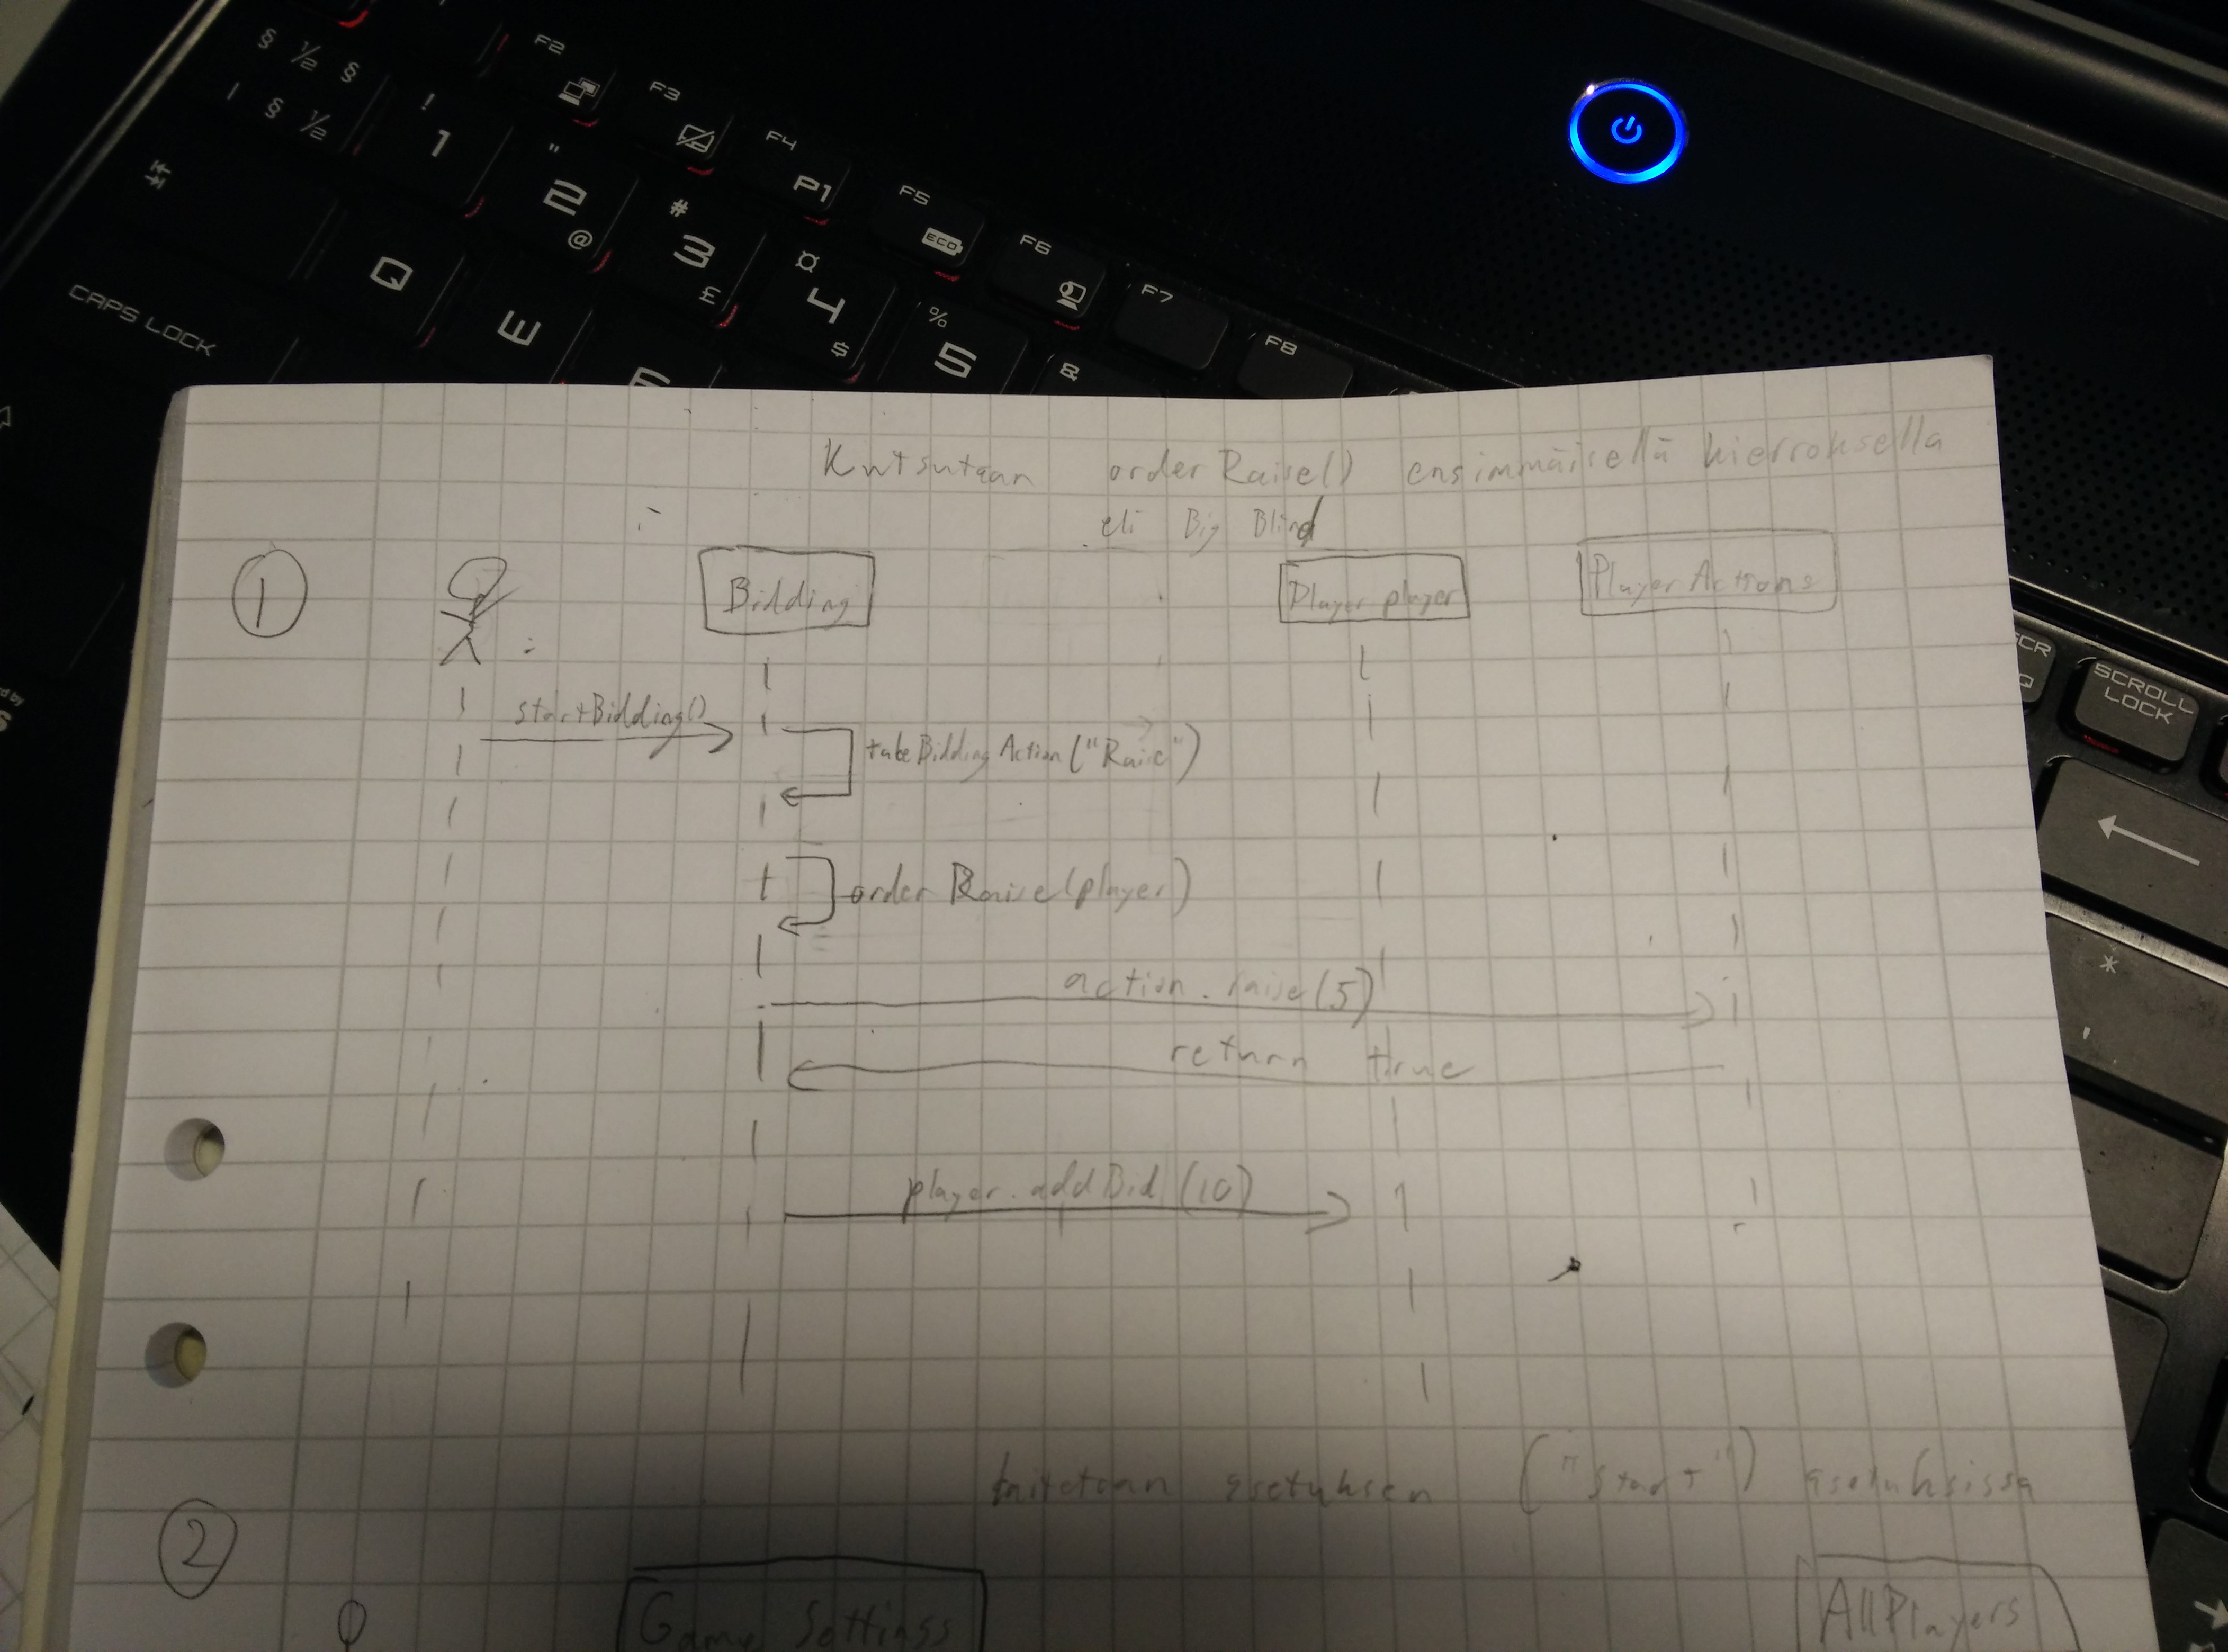 § ½ §
| § ½
!
1
"
2
@
#
3
£
¤
4
$
%
5
&
F2
F3
F4
P1
F5
ECO
F6
F7
F8
Q
W
E
CAPS LOCK
SCR
Q
SCROLL
LOCK
*
Kutsutaan orderRaise() ensimmäisellä kierroksella
eli Big Blind
1
Bidding
Player player
PlayerActions
startBidding()
takeBiddingAction("Raise")
orderRaise(player)
action.raise(5)
return true
player.addBid(10)
asetuksen ("Start") asetuksissa
2
Game Settings
AllPlayers